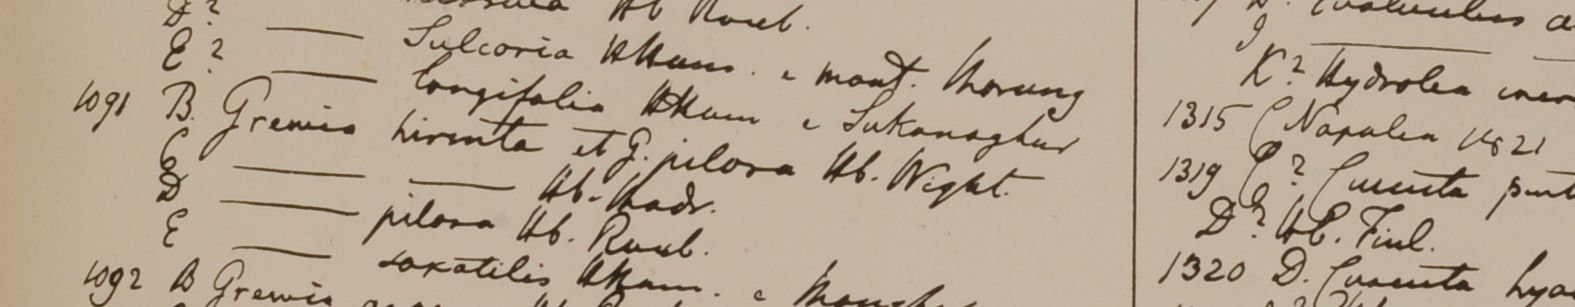 D? Hb Roxb.
E? — Sulcoria HHam. e mont. Morung
— longifolia HHam e Sukanaghur
1091 B. Grewia hirsuta et G. pilosa Hb. Wight.
C — — Hb. Madr.
D — pilosa Hb. Roxb.
E — saxatilis HHam. e
1092 B Grewia
D.
K? Hydrolea
1315 C Napalea 1821
1319 C? Cuscuta
D? Hb. Finl.
1320 D. Cuscuta